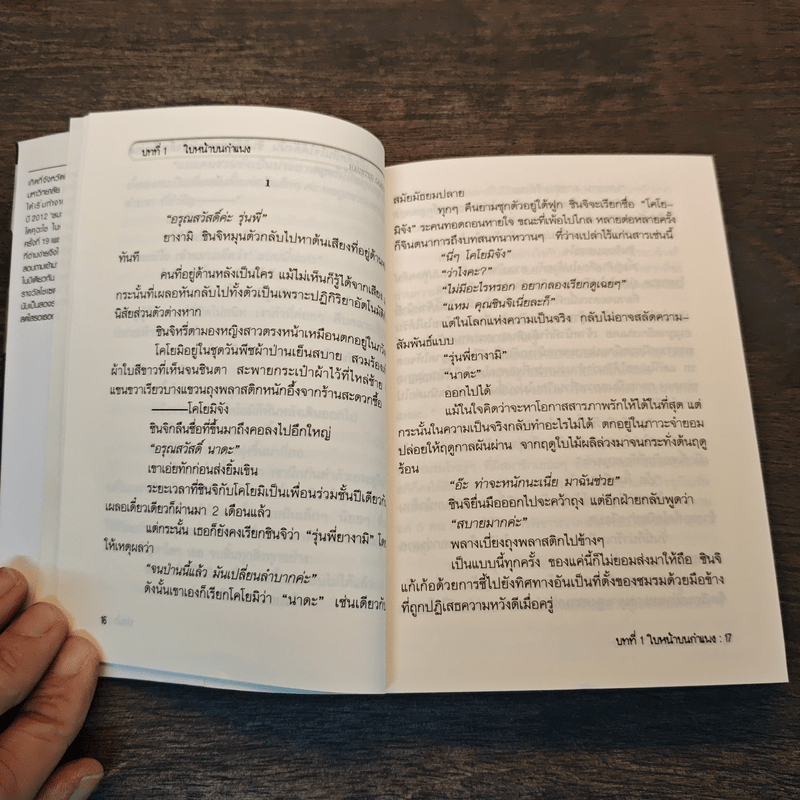 เกิดที่จังหวัด
มหาวิทยาลัย
ปี 2012
บทที่ 1 ใบหน้าบนกำแพง
1
“อรุณสวัสดิ์ค่ะ รุ่นพี่”
ยางามิ ชินจิหมุนตัวกลับไปหาต้นเสียงที่อยู่ด้าน
ทันที
คนที่อยู่ด้านหลังเป็นใคร แม้ไม่เห็นก็รู้ได้จากเสียง
กระนั้นที่เผลอหันกลับไปทั้งตัวเป็นเพราะปฏิกิริยาอัตโนมัติ
นิสัยส่วนตัวต่างหาก
ชินจิหรี่ตามองหญิงสาวตรงหน้าเหมือนตกอยู่ใน
โคโยมิอยู่ในชุดวันพีซผ้าป่านเย็นสบาย สวม
ผ้าใบสีขาวที่เห็นจนชินตา สะพายกระเป๋าผ้าไว้ที่ไหล่ซ้าย
แขนขวาเรียวบางแขวนถุงพลาสติกหนักอึ้งจากร้านสะดวกซื้อ
——โคโยมิจัง
ชินจิกลืนชื่อที่ขึ้นมาถึงคอลงไปอีกใหญ่
“อรุณสวัสดิ์ นาดะ”
เขาเอ่ยทักก่อนส่งยิ้มเขิน
ระยะเวลาที่ชินจิกับโคโยมิเป็นเพื่อนร่วมชั้นปีเดียวกั
เผลอเดี๋ยวเดียวก็ผ่านมา 2 เดือนแล้ว
แต่กระนั้น เธอก็ยังคงเรียกชินจิว่า “รุ่นพี่ยางามิ”
ให้เหตุผลว่า
“จนป่านนี้แล้ว มันเปลี่ยนลำบากค่ะ”
ดังนั้นเขาเองก็เรียกโคโยมิว่า “นาดะ” เช่นเดียวกับ
16
สมัยมัธยมปลาย
ทุกๆ คืนยามซุกตัวอยู่ใต้ฟูก ชินจิจะเรียกชื่อ “โคโย-
มิจัง” ระคนทอดถอนหายใจ ขณะที่เพ้อไปไกล หลายต่อหลายครั้ง
ก็จินตนาการถึงบทสนทนาหวานๆ ที่ว่างเปล่าไร้แก่นสารเช่นนี้
“นี่ๆ โคโยมิจัง”
“ว่าไงคะ?”
“ไม่มีอะไรหรอก อยากลองเรียกดูเฉยๆ”
“แหม คุณชินจิเนี่ยละก็”
แต่ในโลกแห่งความเป็นจริง กลับไม่อาจสลัดความ-
สัมพันธ์แบบ
“รุ่นพี่ยางามิ”
“นาดะ”
ออกไปได้
แม้ในใจคิดว่าจะหาโอกาสสารภาพรักให้ได้ในที่สุด แต่
กระนั้นในความเป็นจริงกลับทำอะไรไม่ได้ ตกอยู่ในภาวะจำยอม
ปล่อยให้ฤดูกาลผันผ่าน จากฤดูใบไม้ผลิล่วงมาจนกระทั่งต้นฤดู
ร้อน
“อ๊ะ ท่าจะหนักนะเนี่ย มาฉันช่วย”
ชินจิยื่นมือออกไปจะคว้าถุง แต่อีกฝ่ายกลับพูดว่า
“สบายมากค่ะ”
พลางเบี่ยงถุงพลาสติกไปข้างๆ
เป็นแบบนี้ทุกครั้ง ของแค่นี้ก็ไม่ยอมส่งมาให้ถือ ชินจิ
แก้เก้อด้วยการชี้ไปยังทิศทางอันเป็นที่ตั้งของชมรมด้วยมือข้าง
ที่ถูกปฏิเสธความหวังดีเมื่อครู่
บทที่ 1 ใบหน้าบนกำแพง : 17